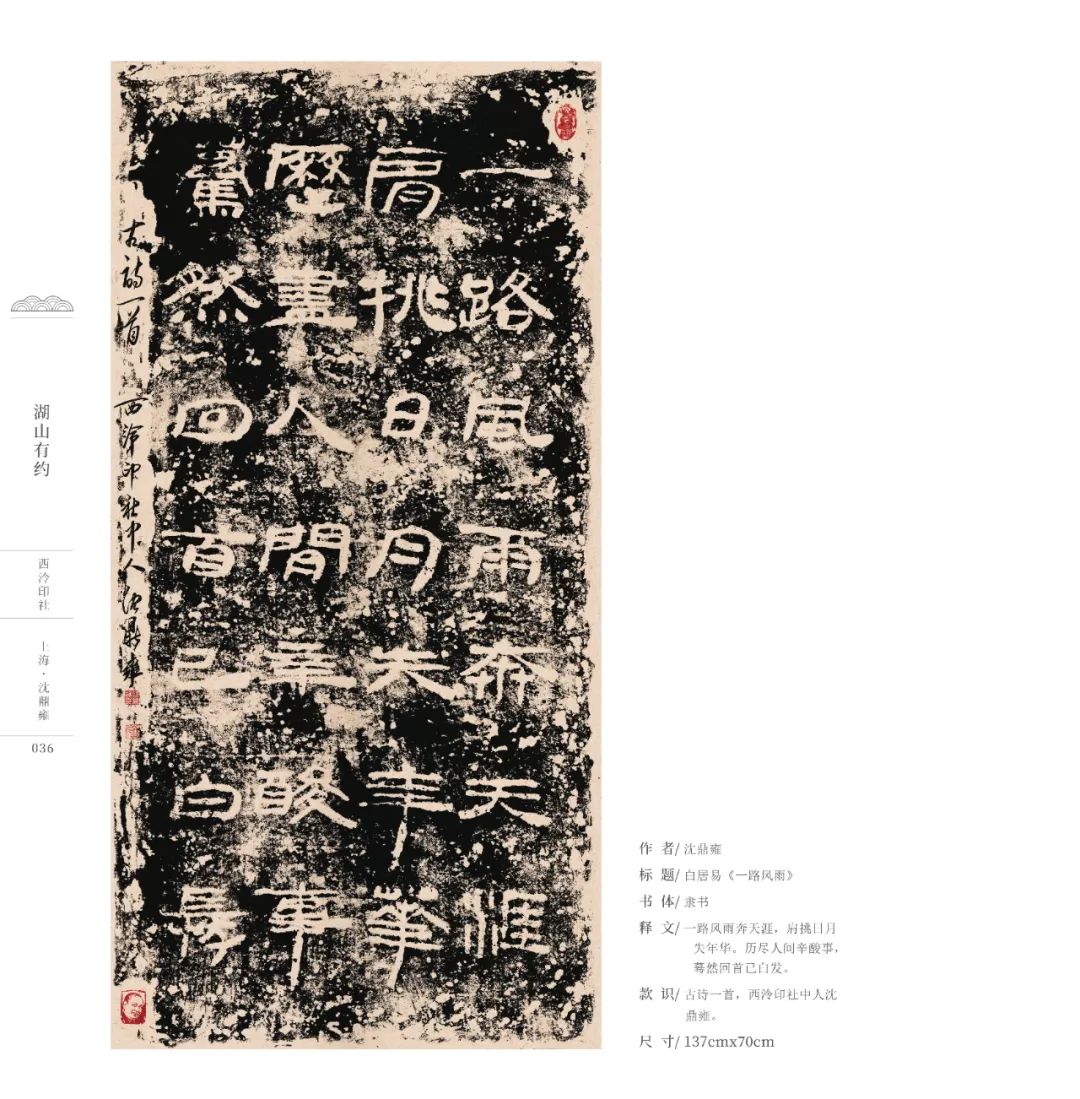 湖山有约
西泠印社
上海·沈鼎雍
036
一路風雨奔天涯
肩挑日月失年華
歷盡人間辛酸事
驀然回首已白髮
古詩一首 西泠印社中人沈鼎雍
作 者/ 沈鼎雍
标 题/ 白居易《一路风雨》
书 体/ 隶书
释 文/ 一路风雨奔天涯，肩挑日月
失年华。历尽人间辛酸事，
蓦然回首已白发。
款 识/ 古诗一首，西泠印社中人沈
鼎雍。
尺 寸/ 137cmx70cm